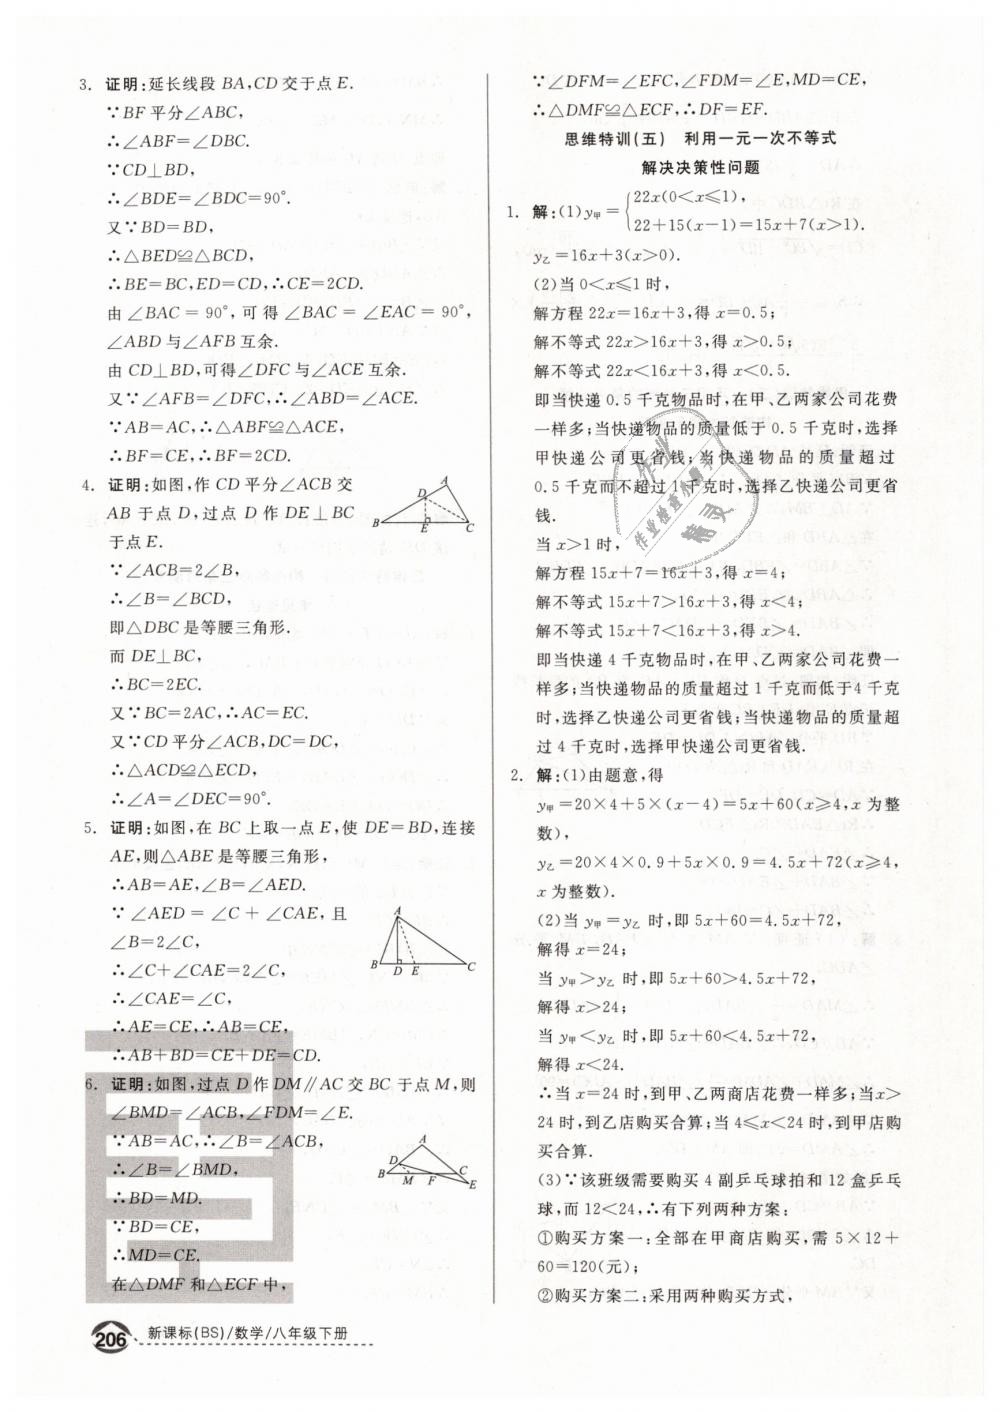 3. 证明:延长线段 BA,CD 交于点 E.
∵BF 平分∠ABC,
∴∠ABF=∠DBC.
∵CD⊥BD,
∴∠BDE=∠BDC=90°.
又∵BD=BD,
∴△BED≌△BCD,
∴BE=BC,ED=CD,∴CE=2CD.
由∠BAC = 90°,可得∠BAC = ∠EAC = 90°,
∠ABD 与∠AFB 互余.
由 CD⊥BD,可得∠DFC 与∠ACE 互余.
又∵∠AFB=∠DFC,∴∠ABD=∠ACE.
∵AB=AC,∴△ABF≌△ACE,
∴BF=CE,∴BF=2CD.
4. 证明:如图,作 CD 平分∠ACB 交
AB 于点 D,过点 D 作 DE⊥BC
于点 E.
A
D
B E C
∵∠ACB=2∠B,
∴∠B=∠BCD,
即△DBC 是等腰三角形.
而 DE⊥BC,
∴BC=2EC.
又∵BC=2AC,∴AC=EC.
又∵CD 平分∠ACB,DC=DC,
∴△ACD≌△ECD,
∴∠A=∠DEC=90°.
5. 证明:如图,在 BC 上取一点 E,使 DE=BD,连接
AE,则△ABE 是等腰三角形,
∴AB=AE,∠B=∠AED.
∵∠AED = ∠C + ∠CAE,且
∠B=2∠C,
A
B D E C
∴∠C+∠CAE=2∠C,
∴∠CAE=∠C,
∴AE=CE,∴AB=CE,
∴AB+BD=CE+DE=CD.
6. 证明:如图,过点 D 作 DM∥AC 交 BC 于点 M,则
∠BMD=∠ACB,∠FDM=∠E.
∵AB=AC,∴∠B=∠ACB,
∴∠B=∠BMD,
A
D
B M F C
E
∴BD=MD.
∵BD=CE,
∴MD=CE.
在△DMF 和△ECF 中,
∵∠DFM=∠EFC,∠FDM=∠E,MD=CE,
∴△DMF≌△ECF,∴DF=EF.
思维特训(五) 利用一元一次不等式
解决决策性问题
1. 解:(1)y甲={22x(0<x≤1),
22+15(x-1)=15x+7(x>1).
y乙=16x+3(x>0).
(2)当 0<x≤1 时,
解方程 22x=16x+3,得 x=0.5;
解不等式 22x>16x+3,得 x>0.5;
解不等式 22x<16x+3,得 x<0.5.
即当快递 0.5 千克物品时,在甲、乙两家公司花费
一样多;当快递物品的质量低于 0.5 千克时,选择
甲快递公司更省钱;当快递物品的质量超过
0.5 千克而不超过 1 千克时,选择乙快递公司更省
钱.
当 x>1 时,
解方程 15x+7=16x+3,得 x=4;
解不等式 15x+7>16x+3,得 x<4;
解不等式 15x+7<16x+3,得 x>4.
即当快递 4 千克物品时,在甲、乙两家公司花费一
样多;当快递物品的质量超过 1 千克而低于 4 千克
时,选择乙快递公司更省钱;当快递物品的质量超
过 4 千克时,选择甲快递公司更省钱.
2. 解:(1)由题意,得
y甲=20×4+5×(x-4)=5x+60(x≥4,x 为整
数),
y乙=20×4×0.9+5x×0.9=4.5x+72(x≥4,
x 为整数).
(2)当 y甲=y乙 时,即 5x+60=4.5x+72,
解得 x=24;
当 y甲>y乙 时,即 5x+60>4.5x+72,
解得 x>24;
当 y甲<y乙 时,即 5x+60<4.5x+72,
解得 x<24.
∴当 x=24 时,到甲、乙两商店花费一样多;当 x>
24 时,到乙店购买合算;当 4≤x<24 时,到甲店购
买合算.
(3)∵该班级需要购买 4 副乒乓球拍和 12 盒乒乓
球,而 12<24,∴有下列两种方案:
①购买方案一:全部在甲商店购买,需 5×12+
60=120(元);
②购买方案二:采用两种购买方式,
作业
作业检查小助手
精灵
206 新课标(BS)/数学/八年级下册